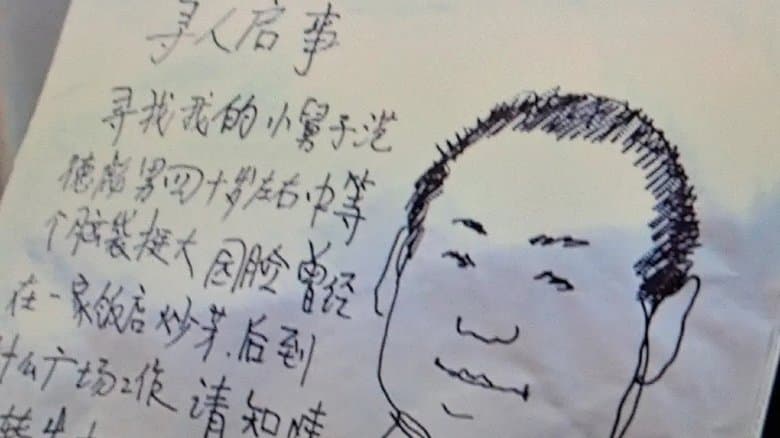 寻人启事
寻找我的小舅子范
德彪男四十岁左右中等
个脑袋挺大圆脸曾经
在一家饭店炒菜.后到
什么广场工作请知情
转告